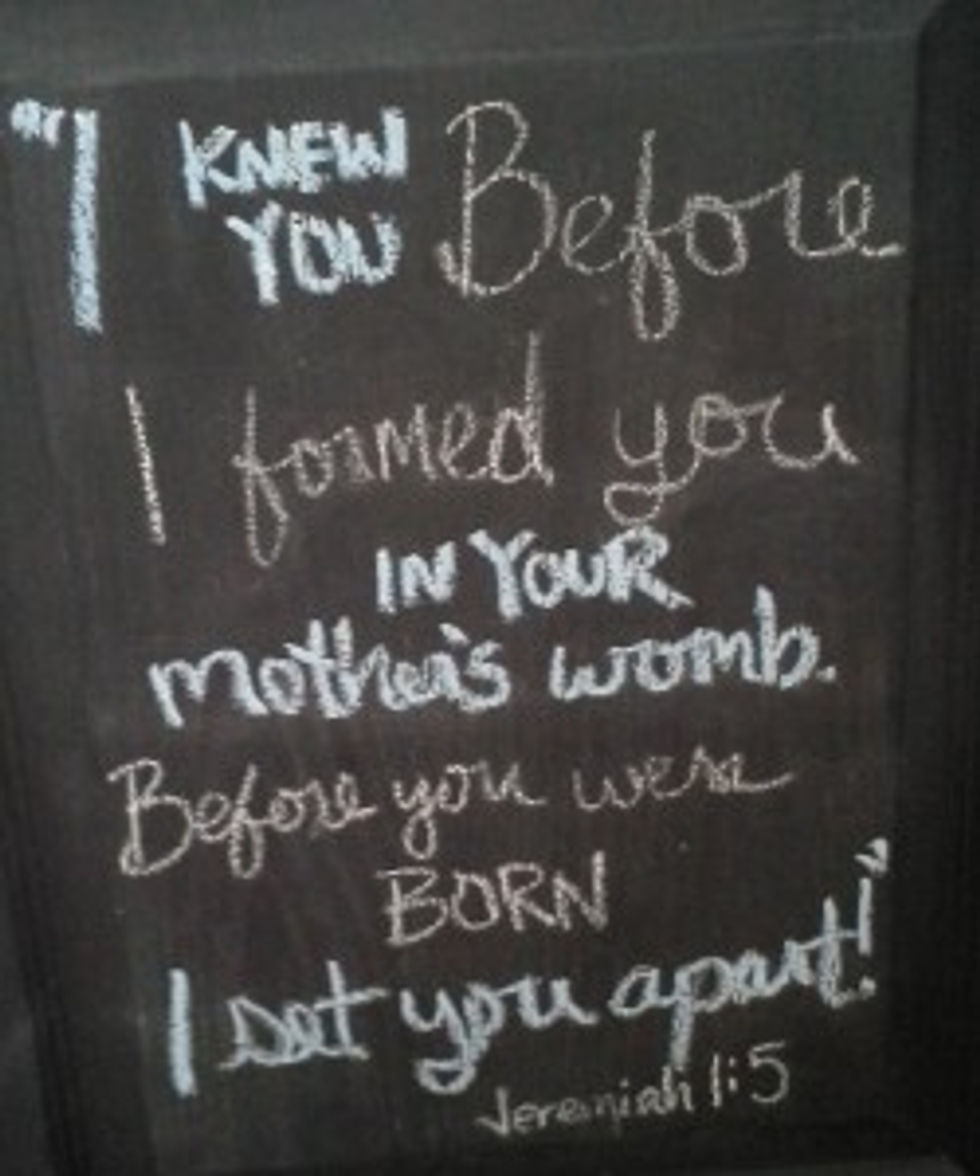 "I KNEW YOU Before
I formed you
IN YOUR
mother's womb.
Before you were
BORN
I set you apart!"
Jeremiah 1:5